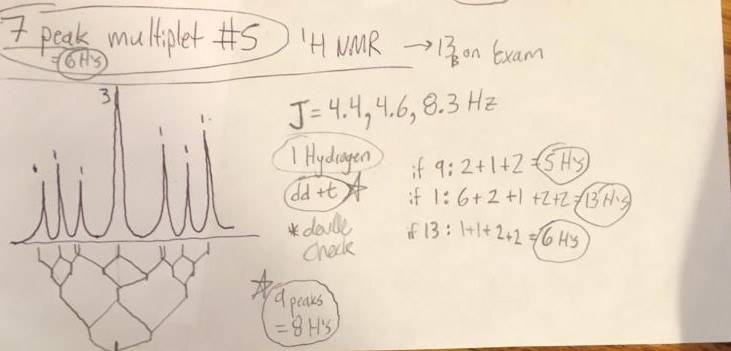 7 peak multiplet #5 ¹H NMR → 13 on Exam
= 6 H's
3
J = 4.4, 4.6, 8.3 Hz
1 Hydrogen
dd + t
* double
check
if 9: 2+1+2 = 5 H's
if 1: 6+2+1+2+2 = 13 H's
if 13: 1+1+2+2 = 6 H's
9 peaks
= 8 H's